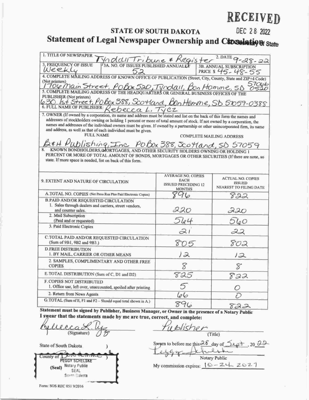 RECEIVED
DEC 28 2022
STATE OF SOUTH DAKOTA
Statement of Legal Newspaper Ownership and Circulation
1. TITLE OF NEWSPAPER Tyndall Tribune & Register 2. DATE 9-28-22
3. FREQUENCY OF ISSUE Weekly
3A. NO. OF ISSUES PUBLISHED ANNUALLY 52
3B. ANNUAL SUBSCRIPTION PRICE $ 45-48-55
4. COMPLETE MAILING ADDRESS OF KNOWN OFFICE OF PUBLICATION (Street, City, County, State and ZIP+4 Code) (Not printers)
Main Street, PO Box 520, Tyndall, Bon Homme, SD 57066
5. COMPLETE MAILING ADDRESS OF THE HEADQUARTERS OF GENERAL BUSINESS OFFICES OF THE PUBLISHER (Not printers)
1st Street, PO Box 388, Scotland, Bon Homme, SD 57059-0388
6. FULL NAME OF PUBLISHER Rebecca L. Tycz
7. OWNER (If owned by a corporation, its name and address must be stated and list on the back of this form the names and
addresses of stockholders owning or holding 1 percent or more of total amount of stock. If not owned by a corporation, the
names and addresses of the individual owners must be given. If owned by a partnership or other unincorporated firm, its name
and address, as well as that of each individual must be given.
FULL NAME COMPLETE MAILING ADDRESS
B&H Publishing, Inc. PO Box 388, Scotland, SD 57059
8. KNOWN BONDHOLDERS, MORTGAGES, AND OTHER SECURITY HOLDERS OWNING OR HOLDING 1
PERCENT OR MORE OF TOTAL AMOUNT OF BONDS, MORTGAGES OR OTHER SECURITIES (If there are none, so
state. If more space is needed, list on back of this form.
9. EXTENT AND NATURE OF CIRCULATION
AVERAGE NO. COPIES EACH ISSUED PRECEDING 12 MONTHS
ACTUAL NO. COPIES ISSUED NEAREST TO FILING DATE
A. TOTAL NO. COPIES 896 822
B. PAID AND/OR REQUESTED CIRCULATION
1. Sales through dealers and carriers, street vendors, and counter sales. 220 220
2. Mail Subscription (Paid and or requested) 564 560
3. Paid Electronic Copies 21 22
C. TOTAL PAID AND/OR REQUESTED CIRCULATION (Sum of 9B1, 9B2 and 9B3.) 805 802
D. FREE DISTRIBUTION
1. BY MAIL, CARRIER OR OTHER MEANS 12 12
2. SAMPLES, COMPLIMENTARY AND OTHER FREE COPIES 8 8
E. TOTAL DISTRIBUTION (Sum of C, D1 and D2) 825 822
F. COPIES NOT DISTRIBUTED
1. Office use, left over, unaccounted, spoiled after printing 5 0
2. Return from News Agents 66 0
G. TOTAL (Sum of E, F1 and F2 - Should equal total shown in A.) 896 822
Statement must be signed by Publisher, Business Manager, or Owner in the presence of a Notary Public
I swear that the statements made by me are true, correct, and complete:
Rebecca L Tycz Publisher
(Signature) (Title)
State of South Dakota
Sworn to before me this 28 day of Sept, 2022
County of
PEGGY SCHELSKE
Notary Public
SEAL
South Dakota
(Seal)
Notary Public
My commission expires: 10-26-2027